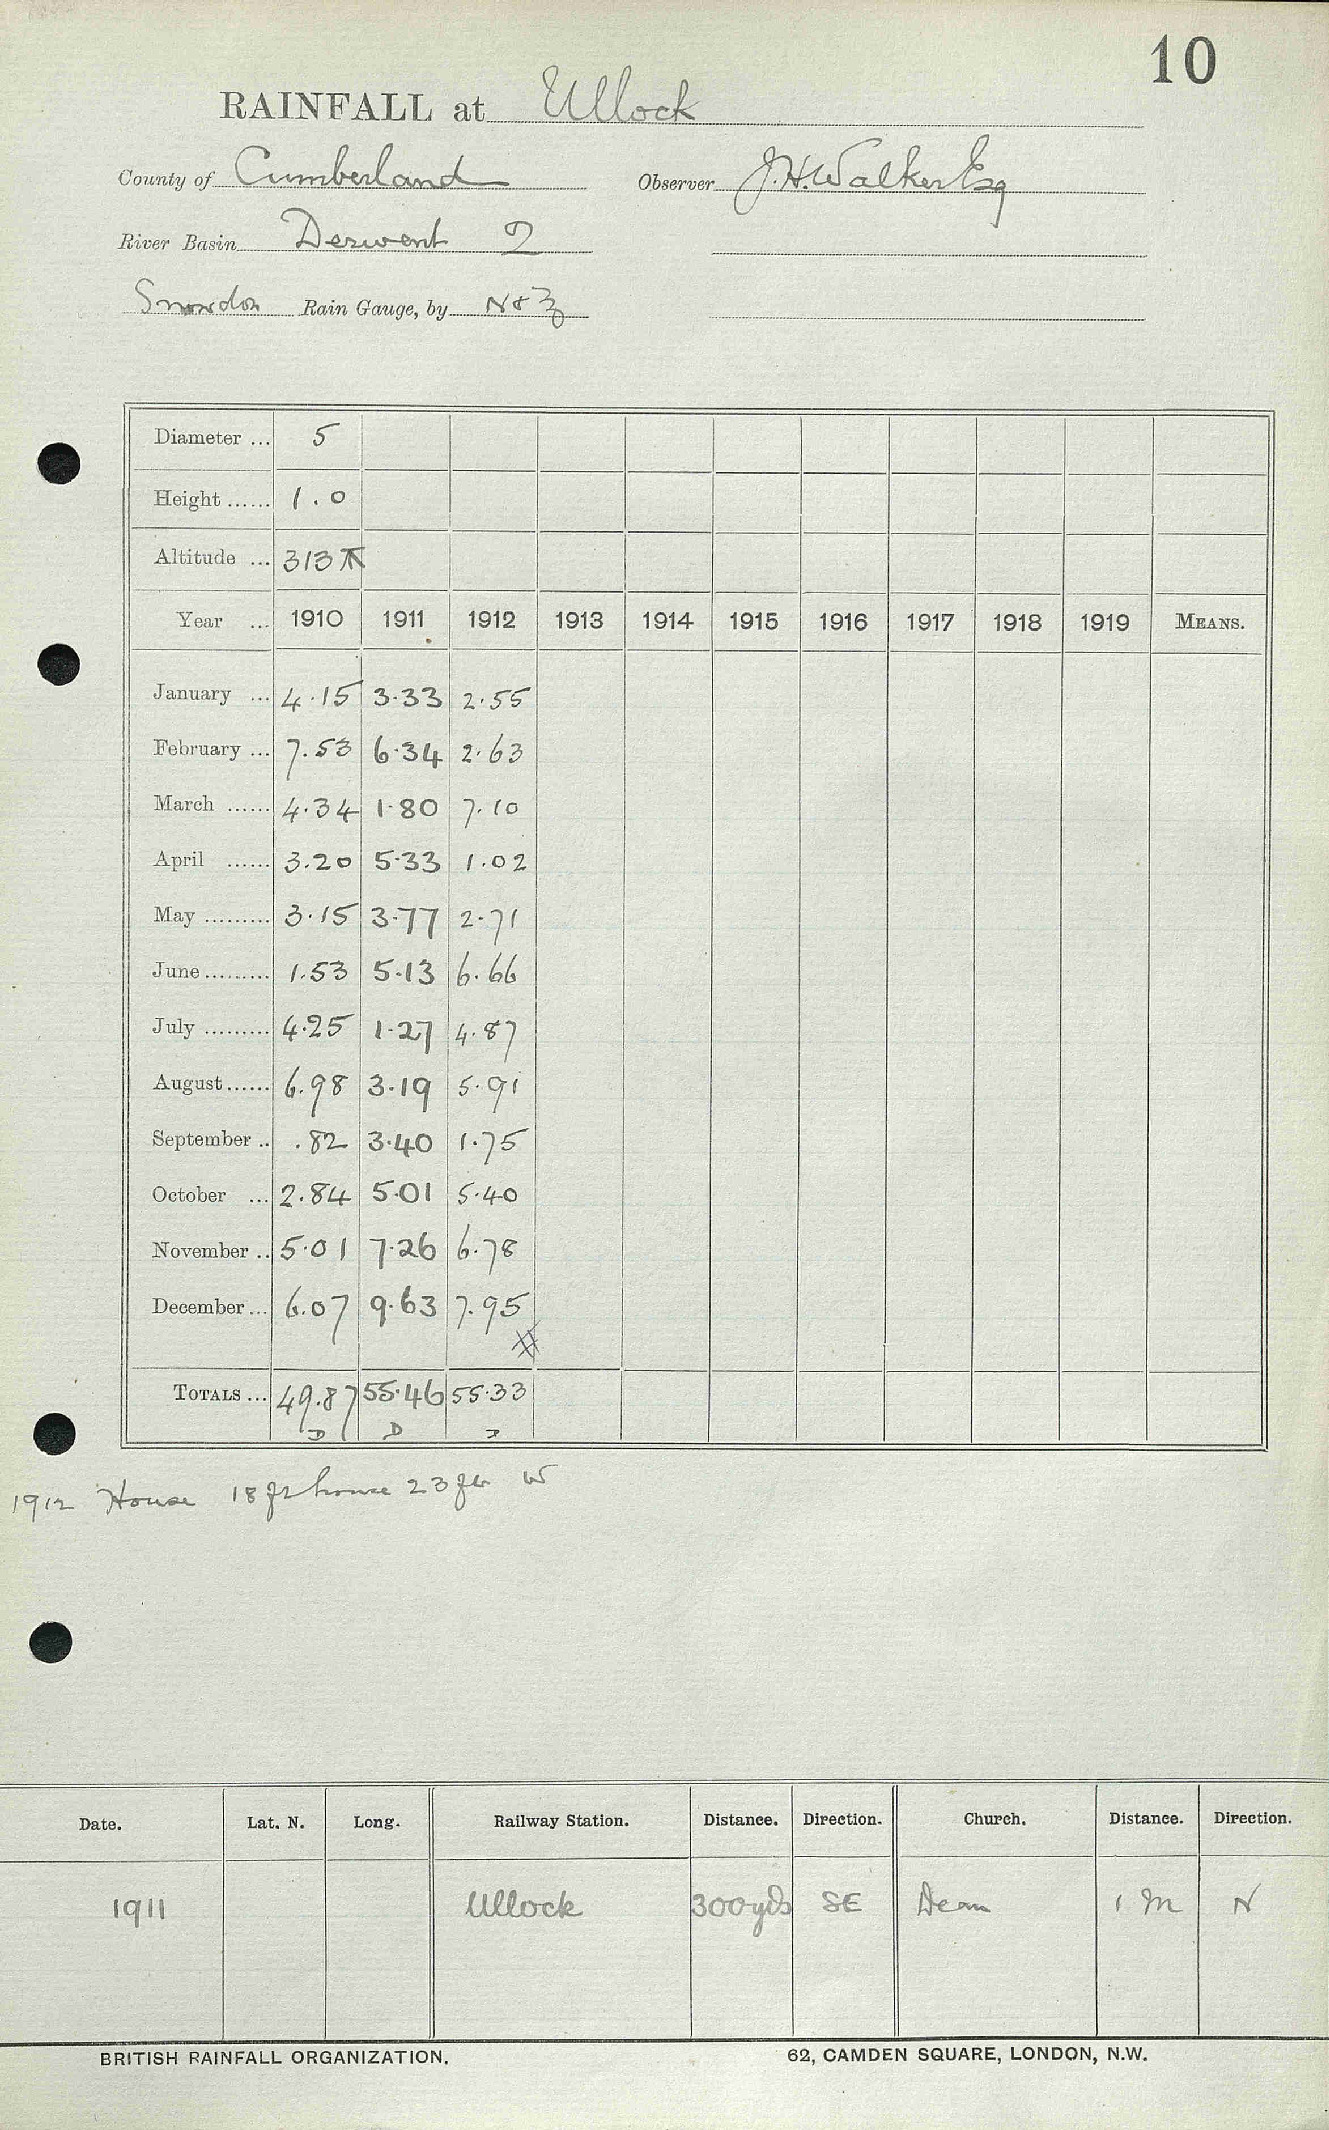 10
RAINFALL at Ullock
County of Cumberland Observer J.H. Walker Esq
River Basin Derwent 2
Snowdon Rain Gauge, by N & Z
Diameter ... 5
Height ...... 1.0
Altitude ... 313
Year ... 1910 1911 1912 1913 1914 1915 1916 1917 1918 1919 MEANS.
January ... 4.15 3.33 2.55
February ... 7.53 6.34 2.63
March ...... 4.34 1.80 7.10
April ...... 3.20 5.33 1.02
May ......... 3.15 3.77 2.71
June ......... 1.53 5.13 6.66
July ......... 4.25 1.27 4.87
August ...... 6.98 3.19 5.91
September .. .82 3.40 1.75
October ... 2.84 5.01 5.40
November .. 5.01 7.26 6.78
December ... 6.07 9.63 7.95
TOTALS ... 49.87 55.46 55.33
D D D
1912 House 18 ft house 23 ft W
Date. Lat. N. Long. Railway Station. Distance. Direction. Church. Distance. Direction.
1911 Ullock 300 yds SE Dean 1 m N
BRITISH RAINFALL ORGANIZATION. 62, CAMDEN SQUARE, LONDON, N.W.